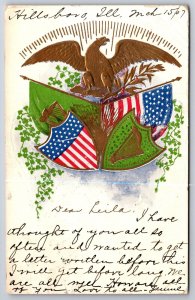 Hillsboro, Ill. Mch 15/07
Dear Leila. I have
thought of you all so
often and wanted to get
a letter written before this
I will get before long. We
are all well. Howard all
of you Love to all - Minnie